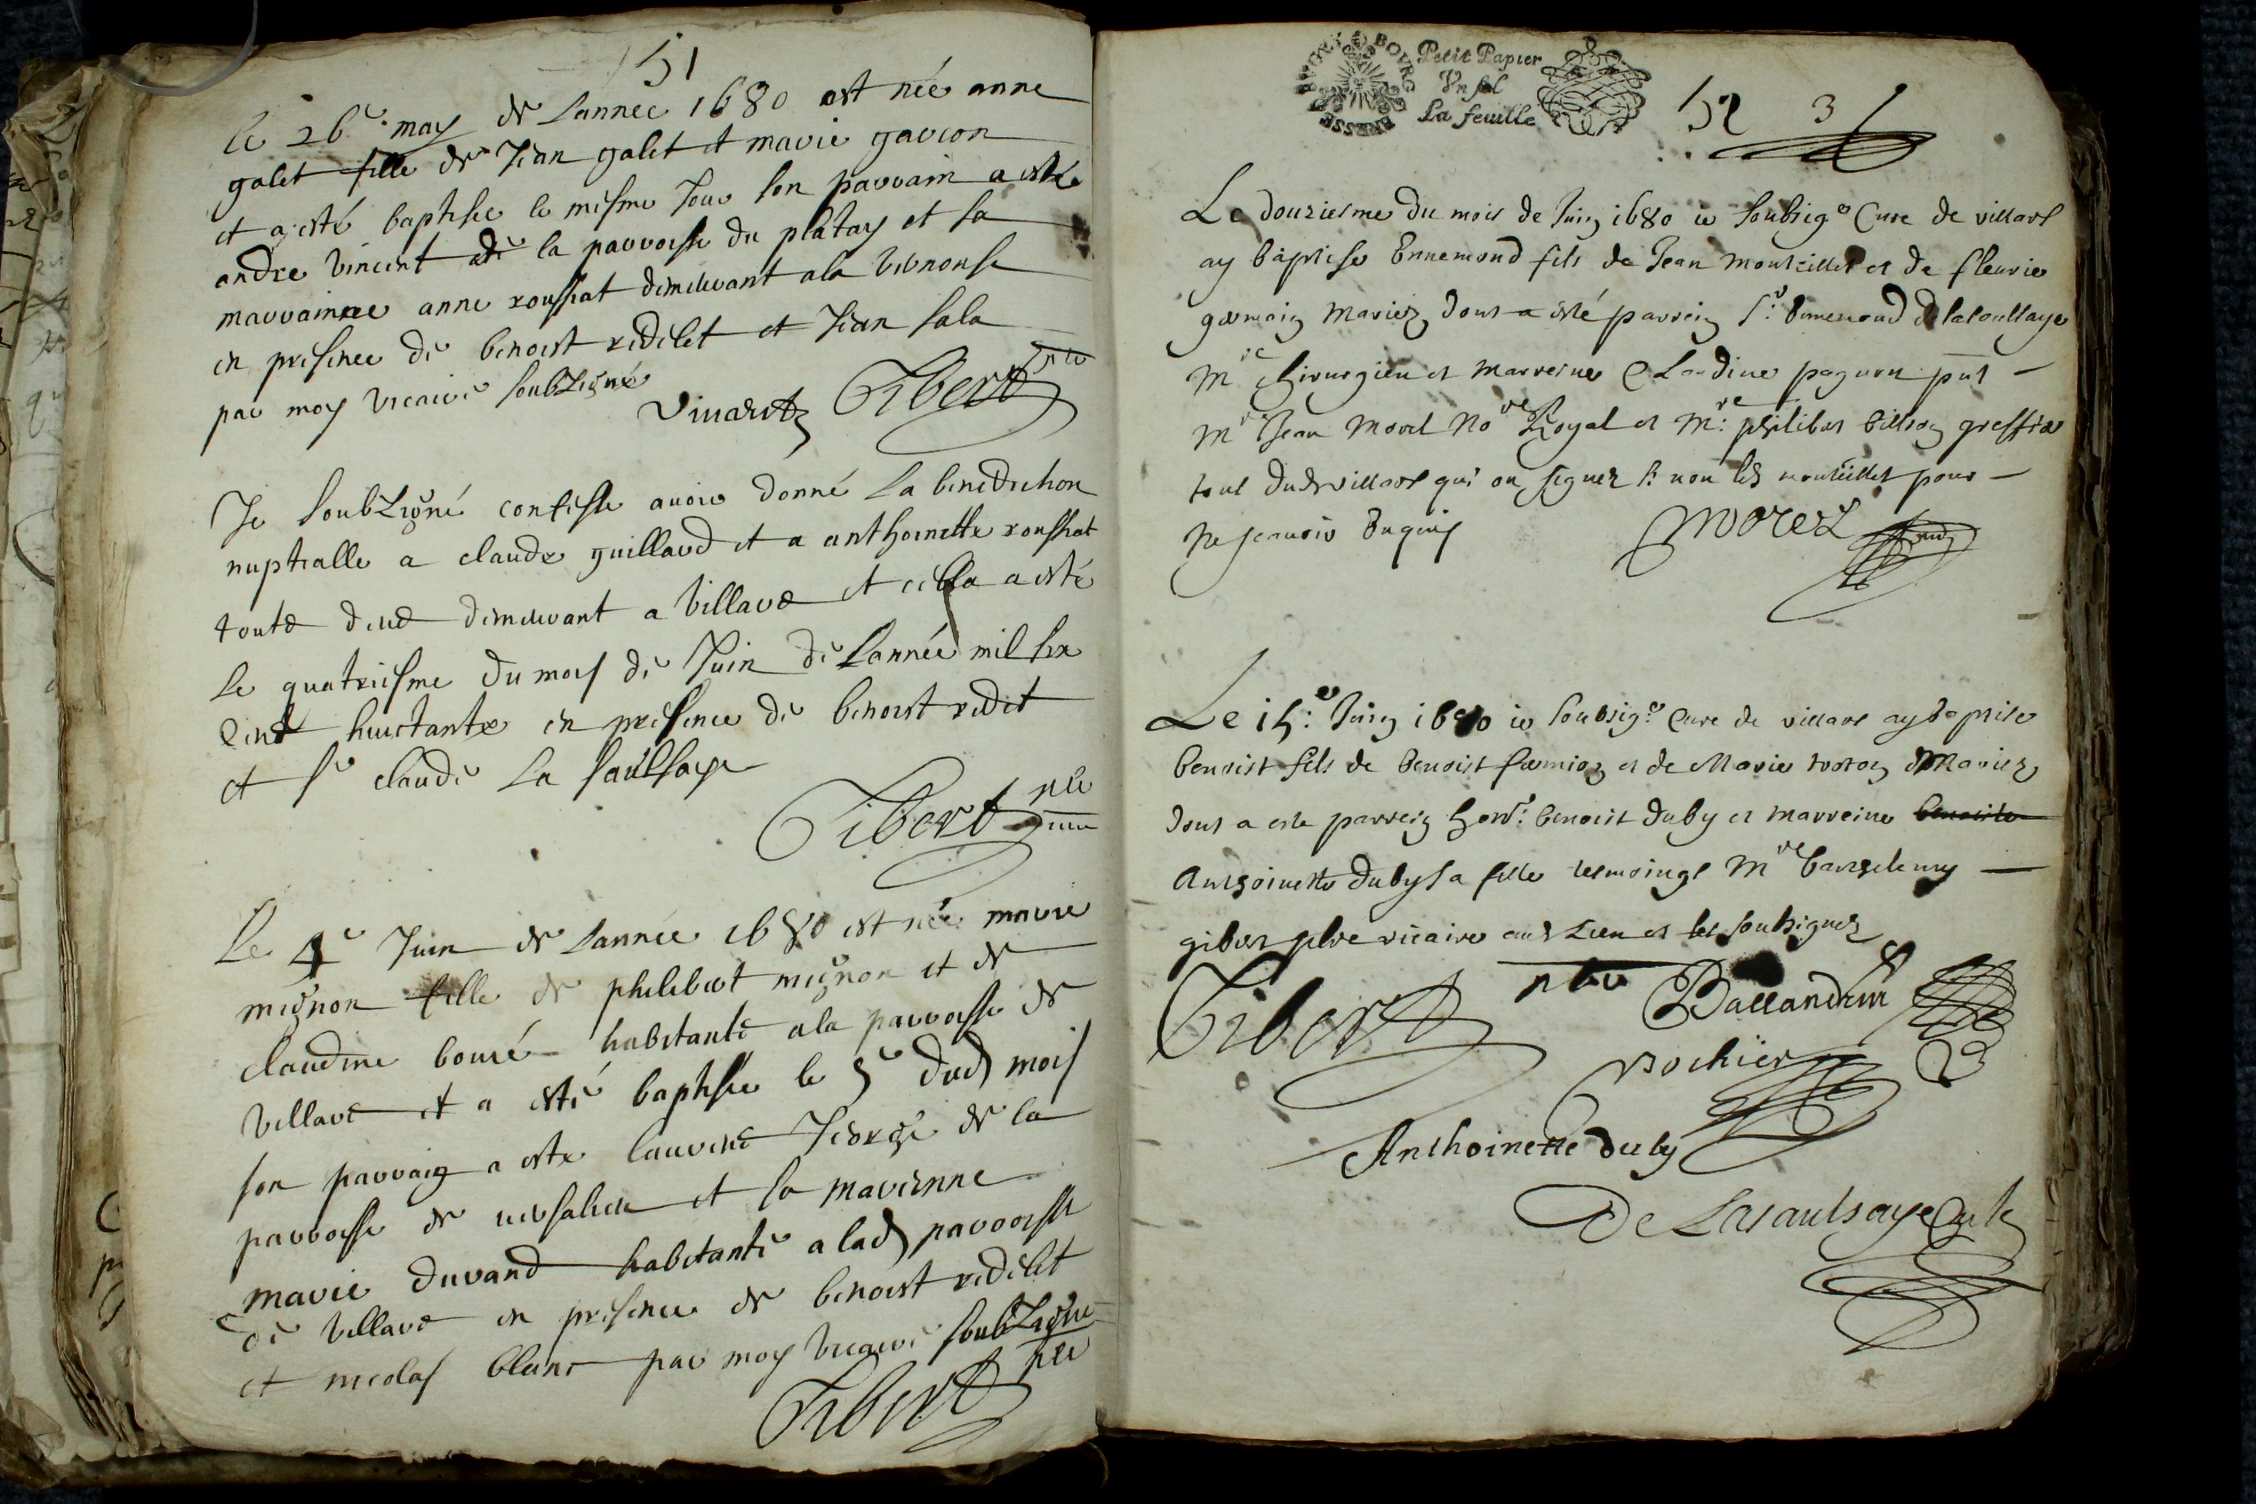 51
le 26e may de lannee 1680 est née anne
galet fille de Jean galet et marie garcon
et a esté baptisée le mesme Jour son parrain a esté
andre vincent de la parroisse du platay et sa
marrainne anne roussat demeurant a la
en presence de benoist redelet et Jean sala
par moy vicaire soubZigné
vincent Gibert pbre
Je soubZigné confesse avoir donné la benediction
nuptialle a claude guillard et a anthoinette roussat
toute deux demeurant a villars et cella a esté
le quatriesme du mois de Juin de lannée mil six
cent huictante en presence de benoist redet
et sr claude la saulsaye
Gibert pbre
Le 4e Juin de lannée 1680 est née marie
mignon fille de philibert mignon et de
claudine bouré habitante a la parroisse de
villars et a esté baptisée le 5e dud mois
son parraig a este laurent George de la
parroisse de et sa marienne
marie durand habitante a lad parroisse
de villars en presence de benoist redelet
et nicolas blanc par moy vicaire soubZigné
Gibert pbre
BOURG BRESSE BUGEY
Petit Papier
Vn sol
La feuille
52 3
Le douziesme du mois de Juing 1680 ie soubsigé Cure de villars
ay baptise Ennemond fils de Jean mouteillet et de fleurie
germaig mariez dont a esté parreig sr Ennemond delasaulsaye
Me chirurgien et marreine Claudine pnt
Me Jean Morel Nore Royal et Mre philibert greffier
tout dud villars qui on signez et non led mouteillet pour
ne scavoir Enquis
Morel
Le 15e Juing 1680 ie soubsigé Cure de villars ay baptise
benoist fils de benoist et de Marie mariez
dont a este parreig honr benoist duby et marreine benoiste
Anthoinette duby sa fille tesmoings Mre barthelemy
gibert pbre vicaire aud Lieu et les soubsignez
Gibert pbre Ballandrin
Rochier
Anthoinette duby
De Lasaulsaye Cure